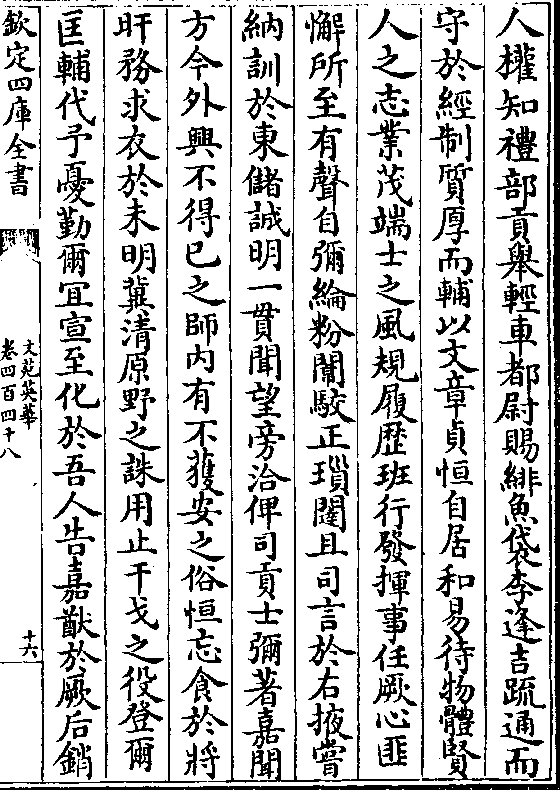 人權知禮部貢舉輕車都尉賜緋魚袋李逢吉疏通而
守於經制質厚而輔以文章貞恒自居和易待物體賢
人之志業茂端士之風規履歴班行發揮事任厥心匪
懈所至有聲自彌綸粉闈駮正瑣闥且司言於右掖嘗
納訓於東儲誠明一貫聞望旁洽俾司貢士彌著嘉聞
方今外興不得已之師内有不獲安之俗恒忘食於將
旰務求衣於未明冀清原野之誅用止干戈之役登爾
匡輔代予憂勤爾宜宣至化於吾人告嘉猷於厥后銷
欽定四庫全書
文苑英華
卷四百四十八
十六